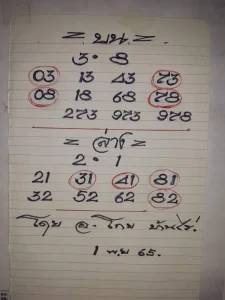 = บน. =
3 · 8
03 13 43 73
08 18 68 78
273 973 978
= ล่าง =
2 · 1
21 31 41 81
32 52 62 82
โดย อ. โทย บ้านไร่.
1 พ.ย 65.